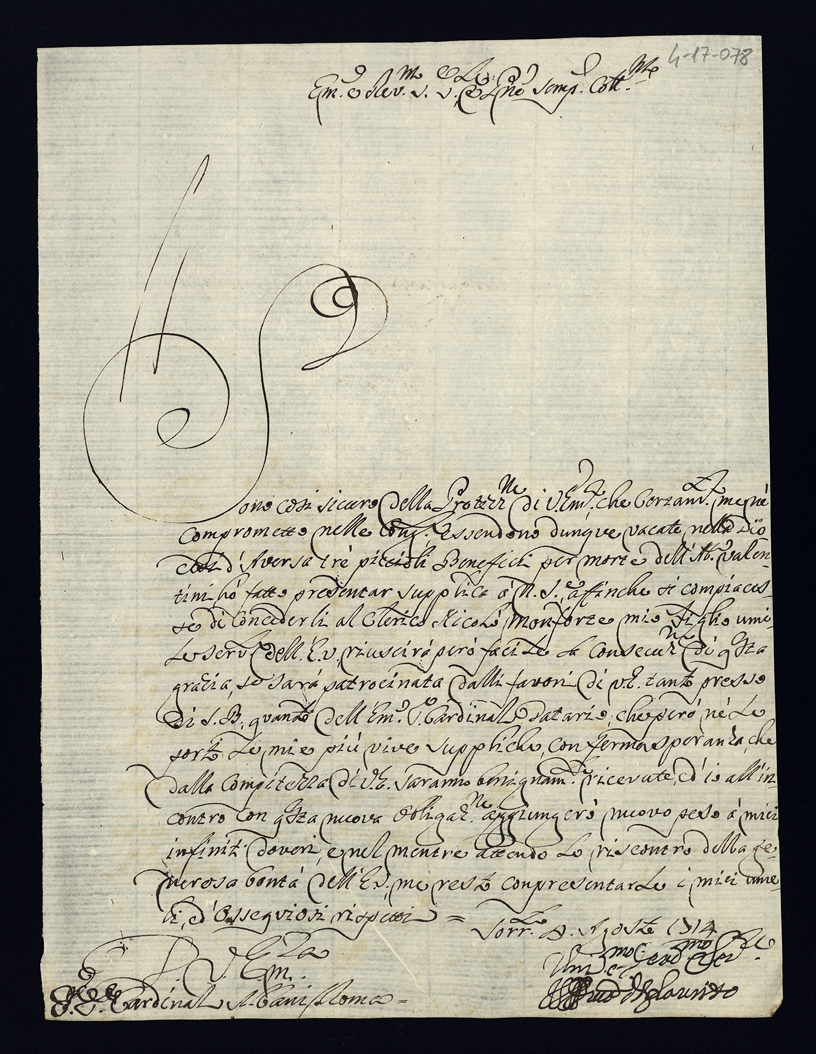 4-17-078
Em.º e Rev.mo S. S.r e P.ne semp. Coll.mo
Sono così sicuro della Protezz.ne di V. Em.za che
compromette nelle Essendono dunque vacate nella Dio
cesi d'Aversa trè piccioli Beneficii per morte dell'Ab. Valen-
tini hò fatto presentar supplica à N. S., affinche si compiaces-
se di concederli al Clerico Nicolò Monforte mio figlio umi-
le serv.e dell'E.V., riuscirà però facile la consecuz.ne di q.sta
grazia, se sarà patrocinata dalli favori di V.E. tanto presso
di S. B. quanto dell'Em.º S.r Cardinale Datario, che però nè le
porto le mie più vive suppliche, con ferma speranza, che
dalla compitezza di V.E. saranno benignam.te ricevute, ed io all'in
contro con q.sta nuova obligaz.ne aggiungerò nuovo peso à miei
infiniti doveri, e nel mentre attendo lo riscontro della ge-
nerosa bontà dell'E.V., me resto con presentarle i miei umi-
li, ed ossequiosi rispetti =
Agosto 1714
D. V. Em.
Um.mo
Cardinal Albani Roma =